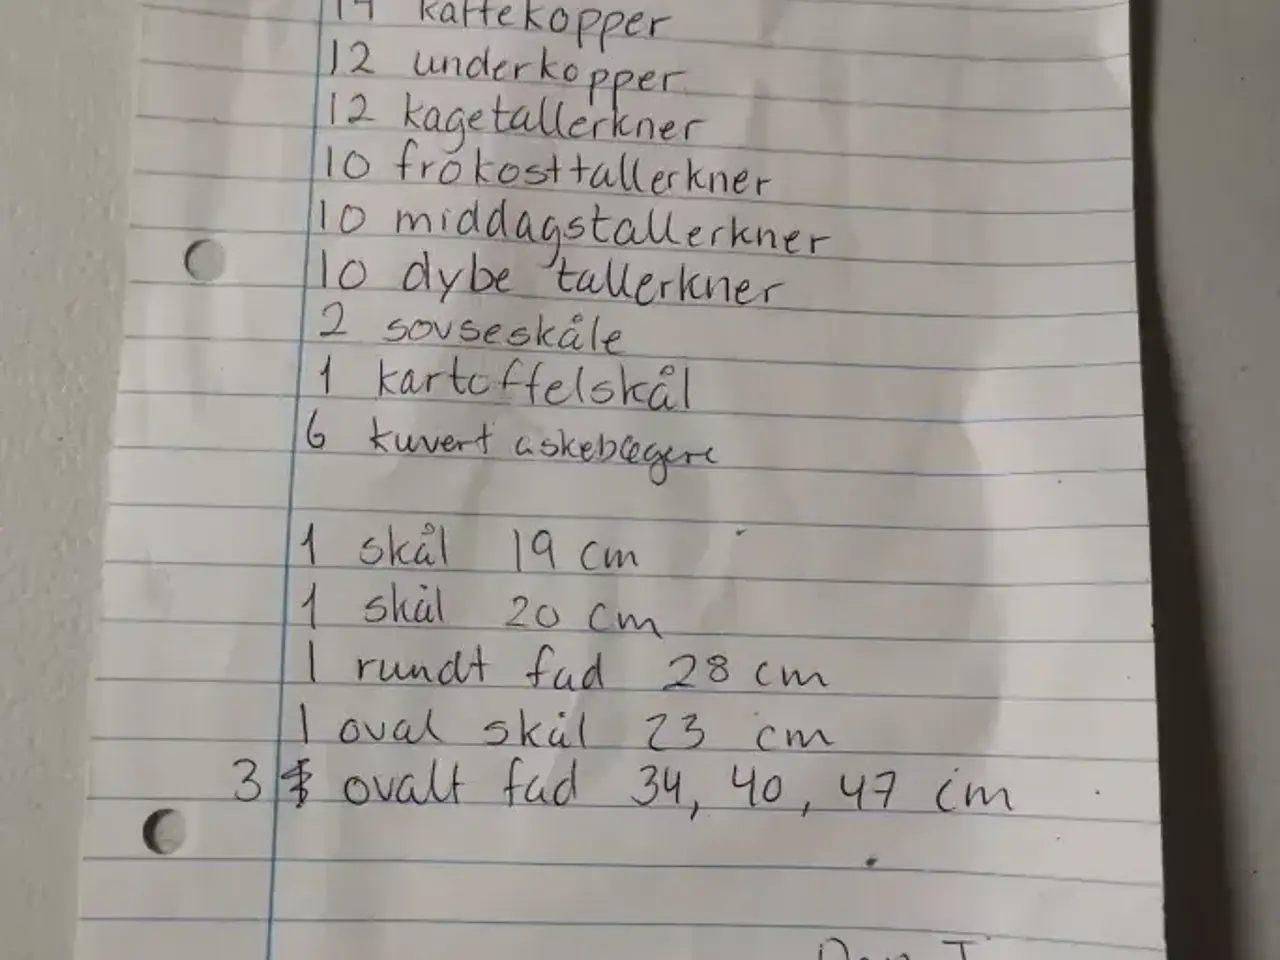 kaffekopper
12 underkopper
12 kagetallerkner
10 frokosttallerkner
10 middagstallerkner
10 dybe tallerkner
2 sovseskåle
1 kartoffelskål
6 kuvert askebægere
1 skål 19 cm
1 skål 20 cm
1 rundt fad 28 cm
1 oval skål 23 cm
3 ovalt fad 34, 40, 47 cm